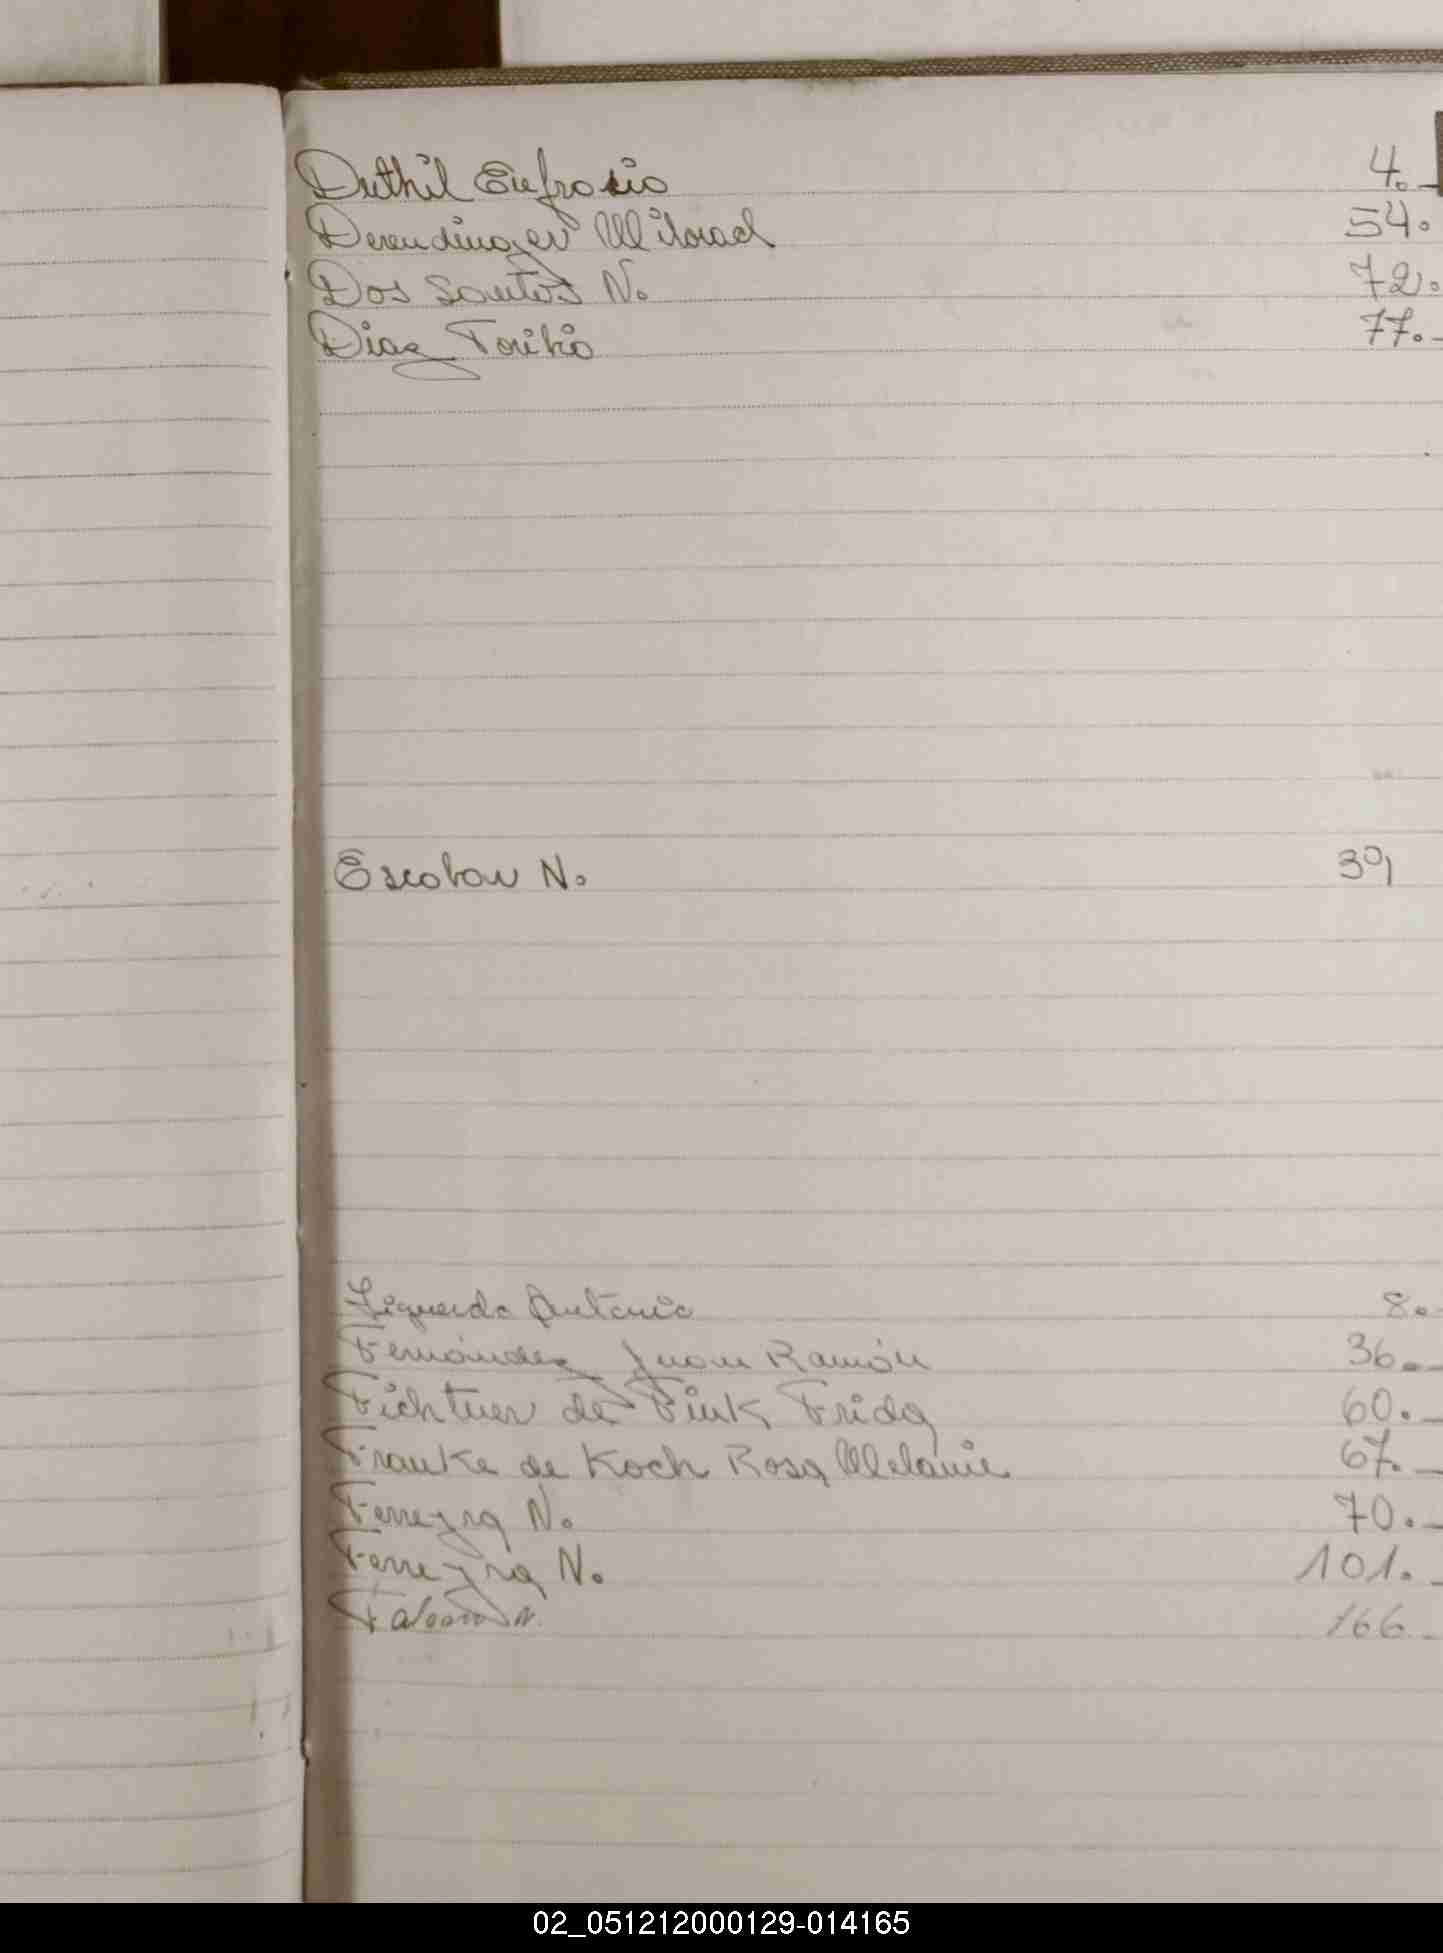 Duthil Eufrosio 4.
Derendinger Milorad 54.
Dos Santos N. 72.
Diaz Toribio 77.
Escobar N. 39
Figueredo Antonio 8.
Fernández Juan Ramón 36.
Fichtner de Fink Frida 60.
Franke de Koch Rosa Melanie 67.
Ferreyra N. 70.
Ferreyra N. 101.
N. 166
02_051212000129-014165